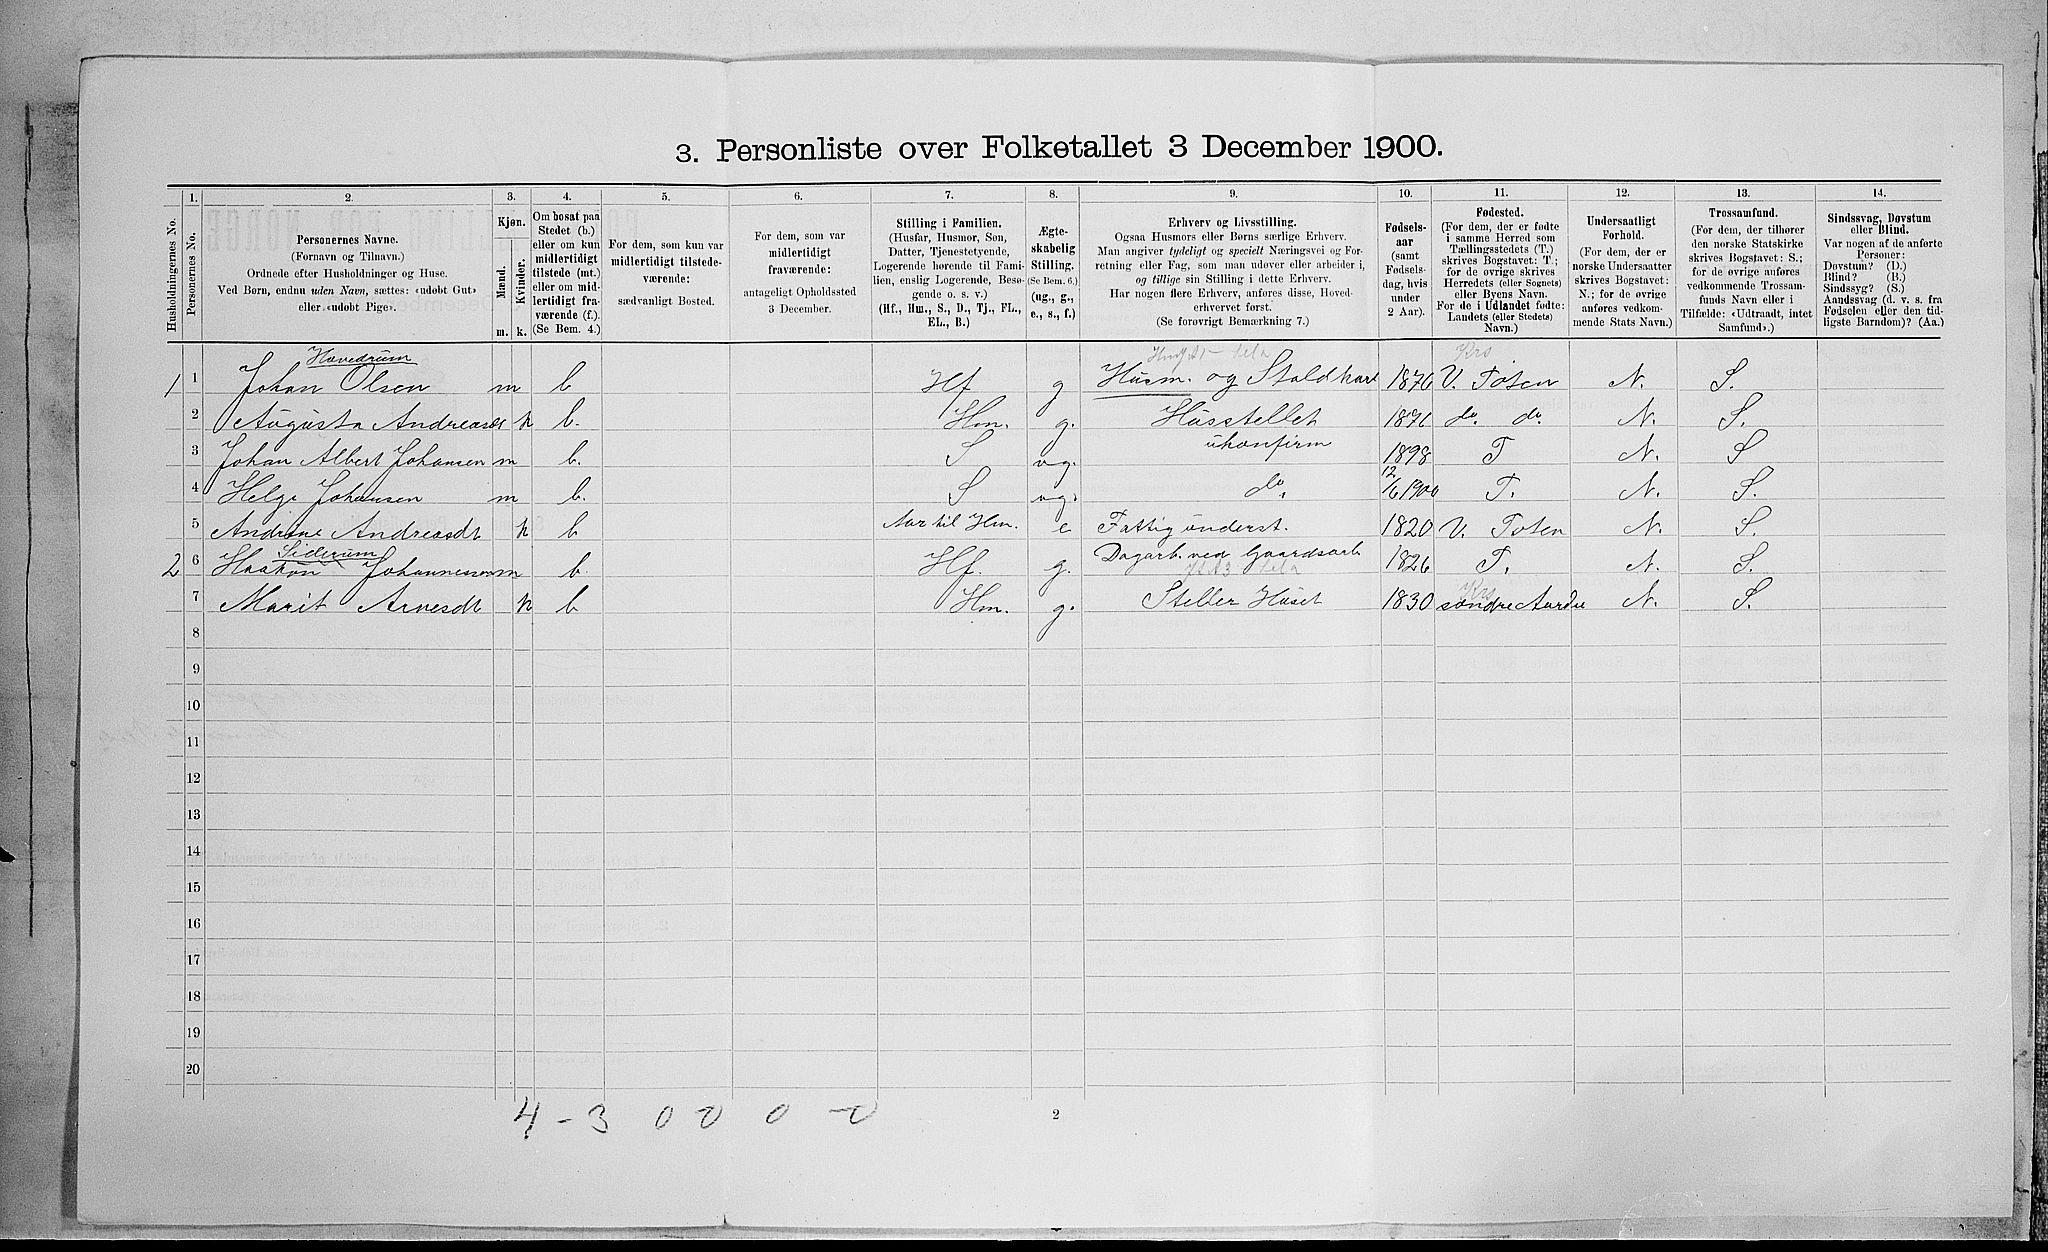 3. Personliste over Folketallet 3 December 1900.
Husholdningernes No.
1.
Personernes No.
2.
Personernes Navne.
(Fornavn og Tilnavn.)
Ordnede efter Husholdninger og Huse.
Ved Børn, endnu uden Navn, sættes: «udøbt Gut»
eller «udøbt Pige».
3.
Kjøn.
Mænd.
Kvinder.
m. k.
4.
Om bosat paa
Stedet (b.)
eller om kun
midlertidigt
tilstede (mt.)
eller om mid-
lertidigt fra-
værende (f.).
(Se Bem. 4.)
5.
For dem, som kun var
midlertidigt tilstede-
værende:
sædvanligt Bosted.
6.
For dem, som var
midlertidigt
fraværende:
antageligt Opholdssted
3 December.
7.
Stilling i Familien.
(Husfar, Husmor, Søn,
Datter, Tjenestetyende,
Logerende hørende til Fami-
lien, enslig Logerende, Besø-
gende o. s. v.)
(Hf., Hm., S., D., Tj., FL.,
EL., B.)
8.
Ægte-
skabelig
Stilling.
(Se Bem. 6.)
(ug., g.,
e., s., f.)
9.
Erhverv og Livsstilling.
Ogsaa Husmors eller Børns særlige Erhverv.
Man angiver tydeligt og specielt Næringsvei og For-
retning eller Fag, som man udøver eller arbeider i,
og tillige sin Stilling i dette Erhverv.
Har nogen flere Erhverv, anføres disse, Hoved-
erhvervet først.
(Se forøvrigt Bemærkning 7.)
10.
Fødsels-
aar
(samt
Fødsels-
dag, hvis
under
2 Aar).
11.
Fødested.
(For dem, der er fødte
i samme Herred som
Tællingsstedets (T.)
skrives Bogstavet: T.;
for de øvrige skrives
Herredets (eller Sognets)
eller Byens Navn.
For de i Udlandet fødte:
Landets (eller Stedets)
Navn.)
12.
Undersaatligt
Forhold.
(For dem, der er
norske Undersaatter
skrives Bogstavet:
N.; for de øvrige
anføres vedkom-
mende Stats Navn.)
13.
Trossamfund.
(For dem, der tilhører
den norske Statskirke
skrives Bogstavet: S.;
for de øvrige anføres
vedkommende Trossam-
funds Navn eller i
Tilfælde: «Udtraadt, intet
Samfund».)
14.
Sindssvag, Døvstum
eller Blind.
Var nogen af de anførte
Personer:
Døvstum? (D.)
Blind? (B.)
Sindssyg? (S.)
Aandssvag (d. v. s. fra
Fødselen eller den tid-
ligste Barndom)? (Aa.)
Hovedrum
Krs
1 1 Johan Olsen m b Hf g Husm. og Staldkarl 1876 V. Toten N. S.
2 Augusta Andreasd k b. Hm. g. Husstellet 1876 do. do. N. S.
3 Johan Albert Johansen m b. S ug. ukonfirm 1898 T N. S
4 Helge Johansen m b. S ug. do. 12/6 1900 T. N. S.
5 Andrine Andreasdt k b Mor til Hm. e Fattigunderst. 1820 V. Toten N. S.
Siderum
2 6 Haakon Johannessen m b. Hf. g. Dagarb. ved Gaardsarb 1826 T. N. S.
Krs
7 Marit Arnesdt k b Hm. g. Steller Huset 1830 søndre Aurdal N. S.
8
9
10
11
12
13
14
15
16
17
18
19
20
4 - 3 0 0 0 0
2